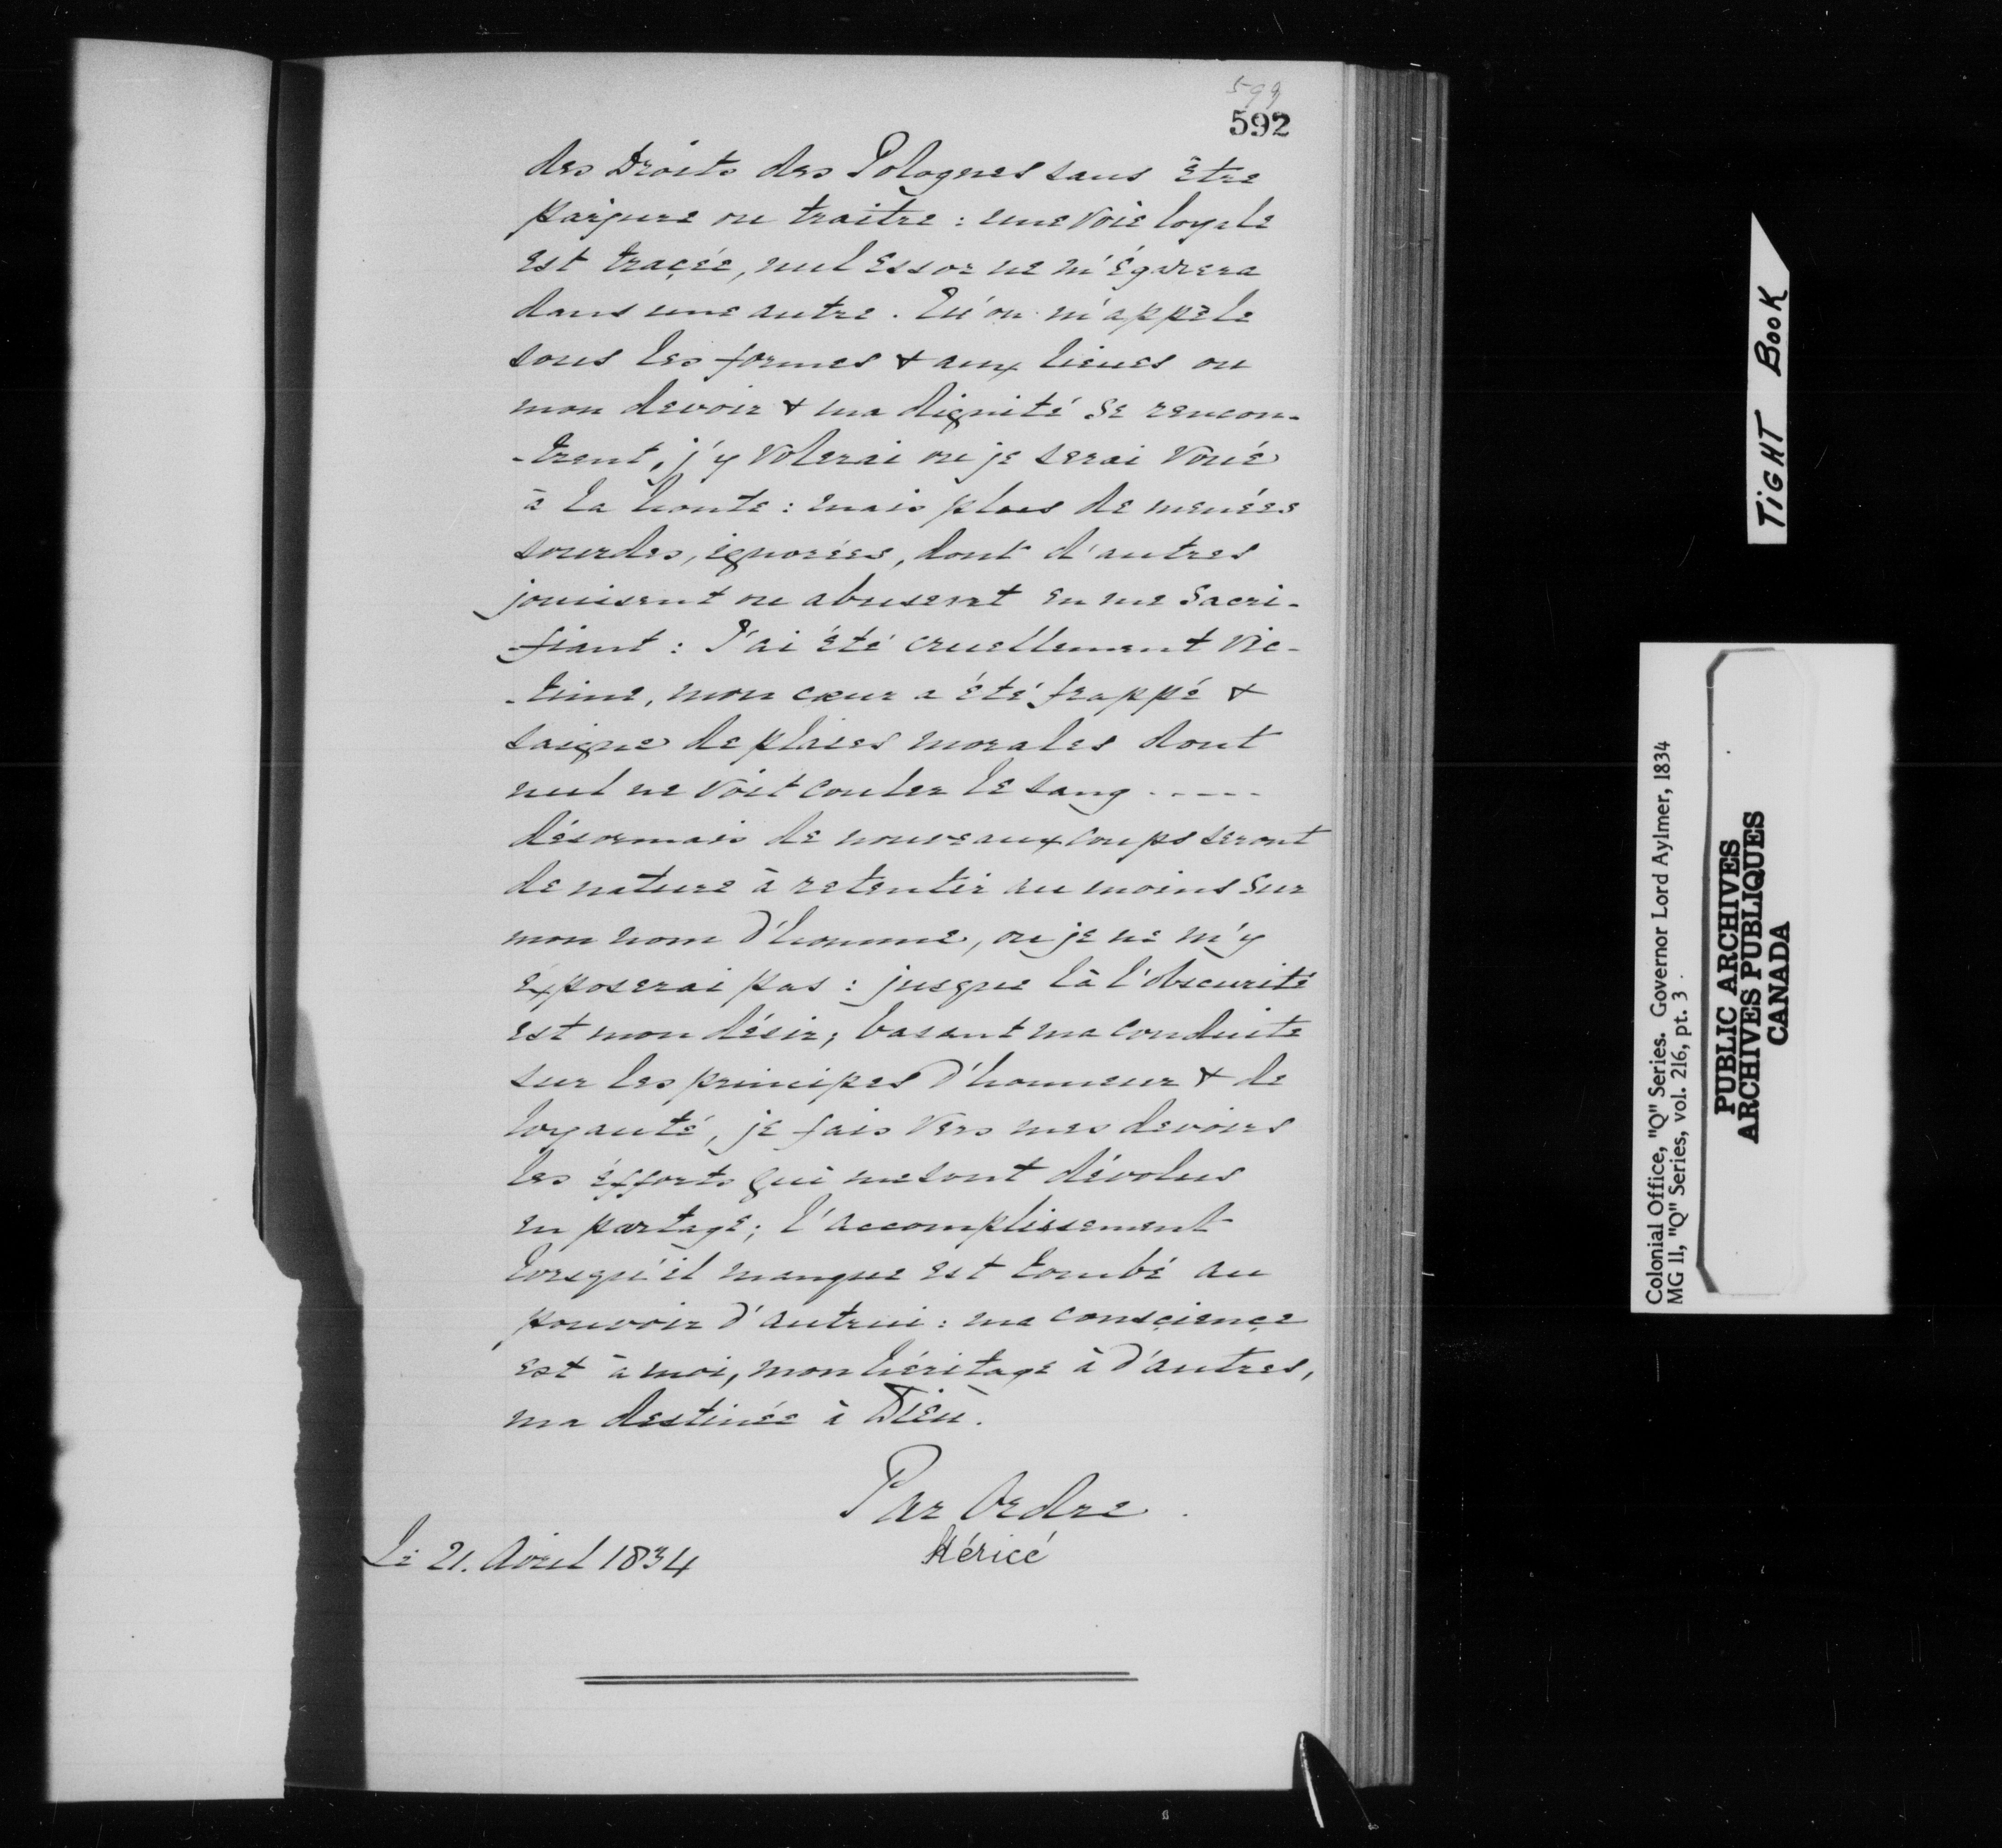 599
592
des Droits des Polognes sans être
parjure ou traitre : une voie loyale
est traçée, nul essor ne m'égarera
dans une autre. Qu'on m'appèle
sous les formes & aux lieues ou
mon devoir & ma dignité se rencon-
-trent, j'y volerai ou je serai voué
à la honte : mais plus de menées
sourdes, ignorées, dont d'autres
jouissent ou abusent en me sacri-
-fiant : J'ai été cruellement vic-
-time, mon cœur a été frappé &
saigne de plaies morales dont
nul ne voit couler le sang .....
désormais de nouveaux coups seront
de nature à retentir au moins sur
mon nom d'homme, ou je ne m'y
éxposerai pas : jusque là l'obscurité
est mon désir ; basant ma conduite
sur les principes d'honneur & de
loyauté, je fais vers mes devoirs
les éfforts qui me sont dévolus
en partage ; l'accomplissement
lorsqu'il manque est tombé au
pouvoir d'autrui : ma conscience
est à moi, mon héritage à d'autres,
ma destinée à Dieu.
Par Ordre.
Le 21. Avril 1834
Héricé
TIGHT BOOK
Colonial Office, "Q" Series. Governor Lord Aylmer, 1834
MG 11, "Q" Series, vol. 216, pt. 3
PUBLIC ARCHIVES
ARCHIVES PUBLIQUES
CANADA